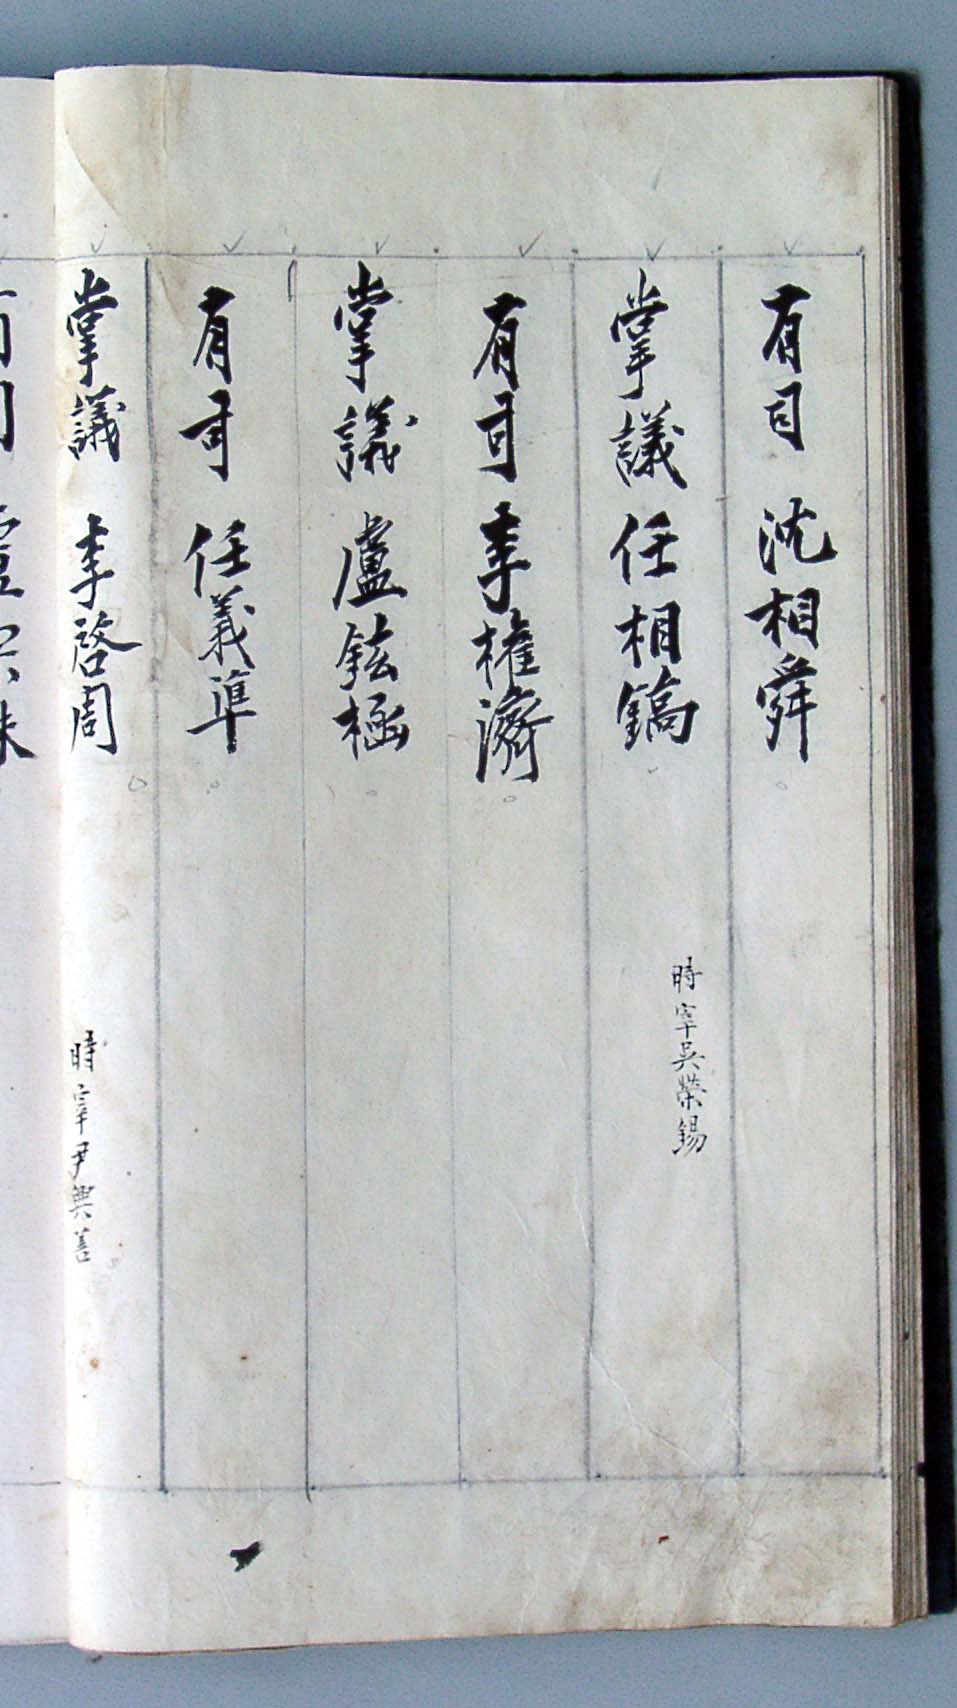 有司 沈相舜
掌議 任相鎬
時宰吳榮錫
有司 李權濟
掌議 盧鉉極
有司 任義準
掌議 李啓周
時宰尹興善